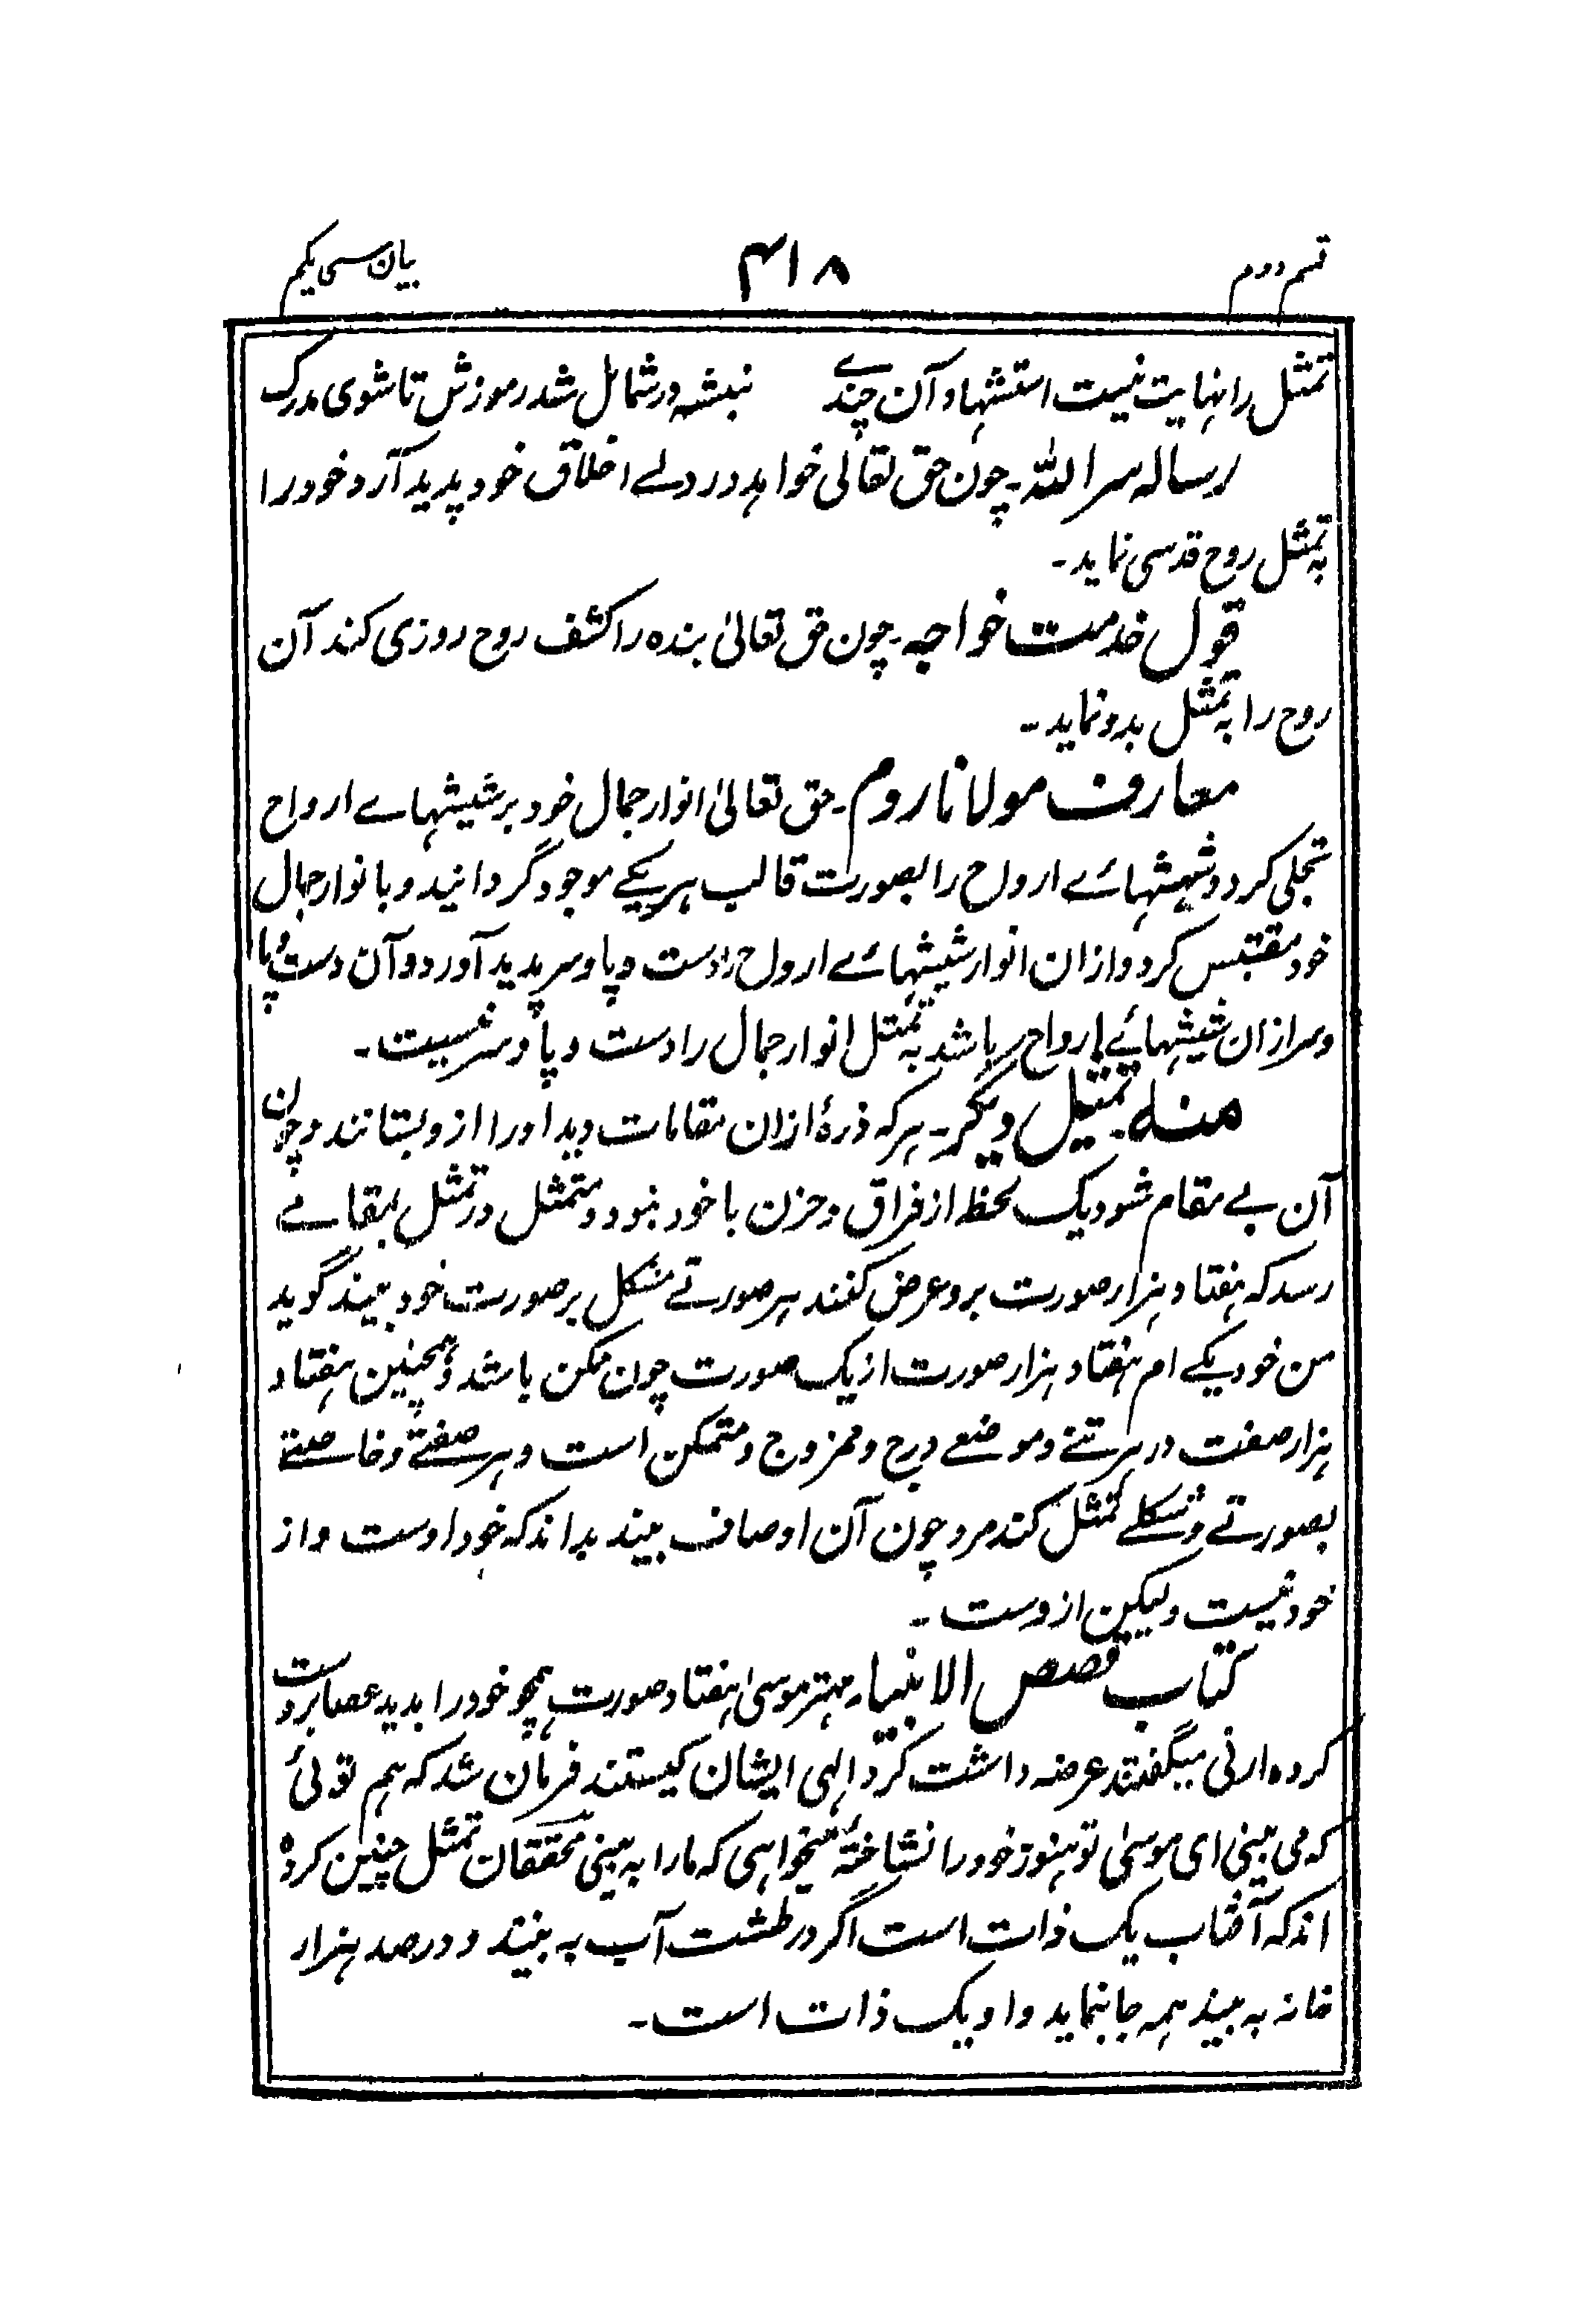 قسم دوم ۴۱۸ بیان سی یکم
تمثل را نہایت نیست استشہاد آن چندے نبشہ در شمائل شد رموزش تا شوی مدرک
رسالہ سر اللہ۔ چون حق تعالی خواہد در دلے اخلاق خود پدید آرد خود را
بہ تمثل روح قدسی نماید۔
قول خدمت خواجہ۔ چون حق تعالیٰ بندہ را کشف روح روزی کند آن
روح را بہ تمثل بدو نماید۔
معارف مولانا روم۔ حق تعالیٰ انوار جمال خود بر شیشہاے ارواح
تجلی کرد و شیشہائے ارواح را بصورت قالب ہر یکے موجود گردانید و با نوار جمال
خود مقتبس کرد و ازان انوار شیشہائے ارواح را دست و پا و سر پدید آورد و آن دست و پا
و سر ازان شیشہائے ارواح باشد بہ تمثل انوار جمال را دست و پا و سر نیست۔
منہ تمثیل دیگر۔ ہر کہ ذرۂ ازان مقامات دید او را از و بستانند و چون
آن بے مقام شود یک لحظ از فراق و حزن با خود نبود و متمثل در تمثل بمقامے
رسد کہ ہفتاد ہزار صورت برو عرض کنند ہر صورتے مشکل بر صورت خود بیند گوید
من خود یکے ام ہفتاد ہزار صورت از یک صورت چون ممکن باشد و ہمچنین ہفتاد
ہزار صفت در ہر تنے و موضعے درج و ممزوج و متمکن است و ہر صفتے و خاصیتے
بصورتے و شکلے تمثل کند مرد چون آن اوصاف بیند بداند کہ خود اوست و از
خود نیست و لیکن ازوست۔
کتاب قصص الانبیاء۔ مہتر موسیٰ ہفتاد صورت ہمچو خود را بدید عصا بر دست
کردہ ارنی میگفتند عرضہ داشت کرد الہی ایشان کیستند فرمان شد کہ ہم توئی
کہ می بینی ای موسیٰ تو ہنوز خود را نشاختۂ میخواہی کہ ما را بہ بینی محققان تمثل چنین کردہ
اند کہ آفتاب یک ذات است اگر در طشت آب بہ بینند و در صد ہزار
خانہ بہ بیند ہمہ جا بنماید و او یک ذات است۔